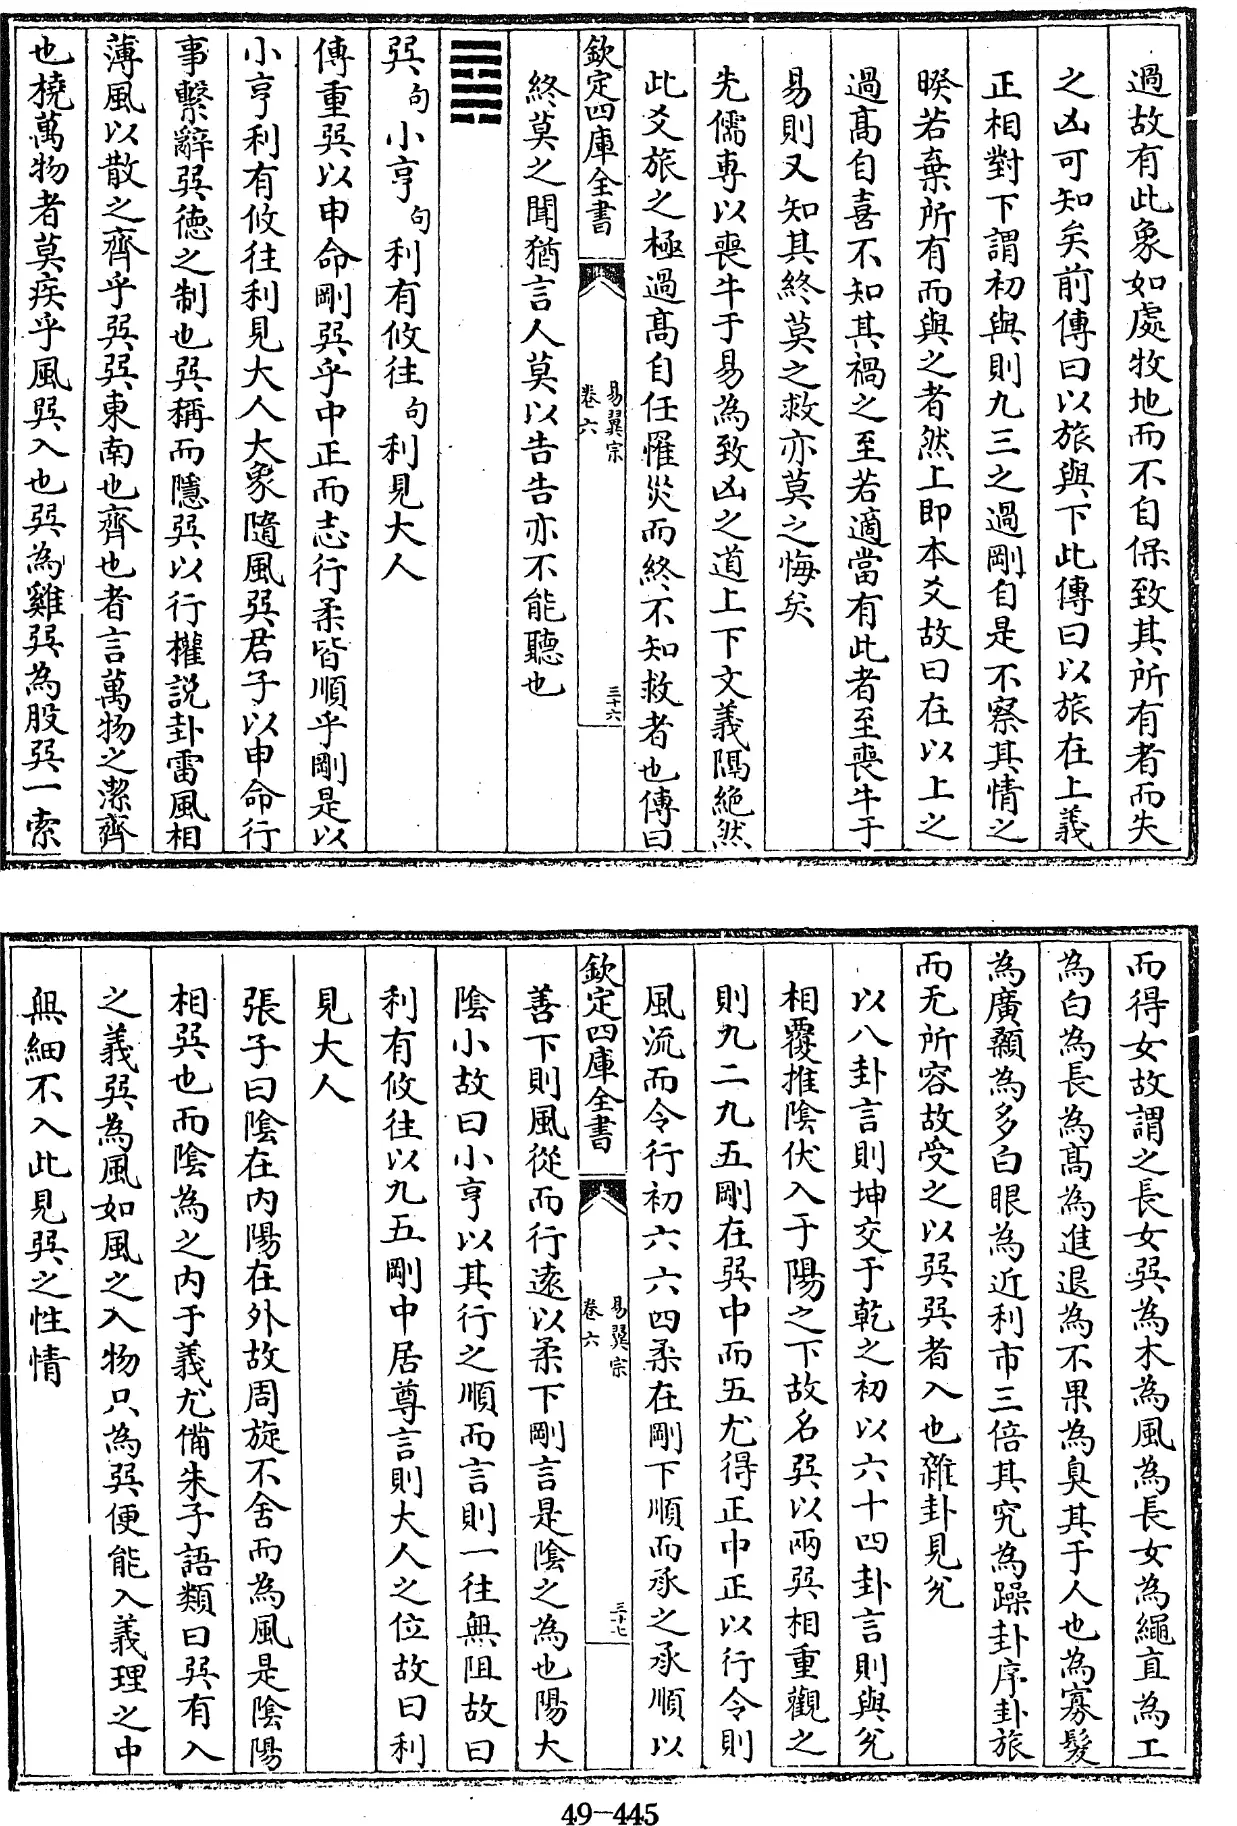 過故有此象如處牧地而不自保致其所有者而失
之凶可知矣前傳曰以旅與下此傳曰以旅在上義
正相對下謂初與則九三之過剛自是不察其情之
暌若棄所有而與之者然上即本爻故曰在以上之
過髙自喜不知其禍之至若適當有此者至喪牛于
易則又知其終莫之救亦莫之悔矣
先儒專以喪牛于易為致凶之道上下文義隔絶然
此爻旅之極過髙自任罹災而終不知救者也傳曰
欽定四庫全書
易翼宗
卷六
三十六
終莫之聞猶言人莫以告告亦不能聽也
䷸
巽句小亨句利有攸往句利見大人
傳重巽以申命剛巽乎中正而志行柔皆順乎剛是以
小亨利有攸往利見大人大象隨風巽君子以申命行
事繫辭巽徳之制也巽稱而隱巽以行權説卦雷風相
薄風以散之齊乎巽巽東南也齊也者言萬物之潔齊
也橈萬物者莫疾乎風巽入也巽為雞巽為股巽一索
而得女故謂之長女巽為木為風為長女為繩直為工
為白為長為髙為進退為不果為臭其于人也為寡髮
為廣顙為多白眼為近利市三倍其究為躁卦序卦旅
而无所容故受之以巽巽者入也雜卦見兊
以八卦言則坤交于乾之初以六十四卦言則與兊
相覆推陰伏入于陽之下故名巽以兩巽相重觀之
則九二九五剛在巽中而五尤得正中正以行令則
風流而令行初六六四柔在剛下順而承之承順以
欽定四庫全書
易翼宗
卷六
三十七
善下則風從而行遠以柔下剛言是陰之為也陽大
陰小故曰小亨以其行之順而言則一往無阻故曰
利有攸往以九五剛中居尊言則大人之位故曰利
見大人
張子曰陰在内陽在外故周旋不舍而為風是陰陽
相巽也而陰為之内于義尤備朱子語類曰巽有入
之義巽為風如風之入物只為巽便能入義理之中
無細不入此見巽之性情
49-445